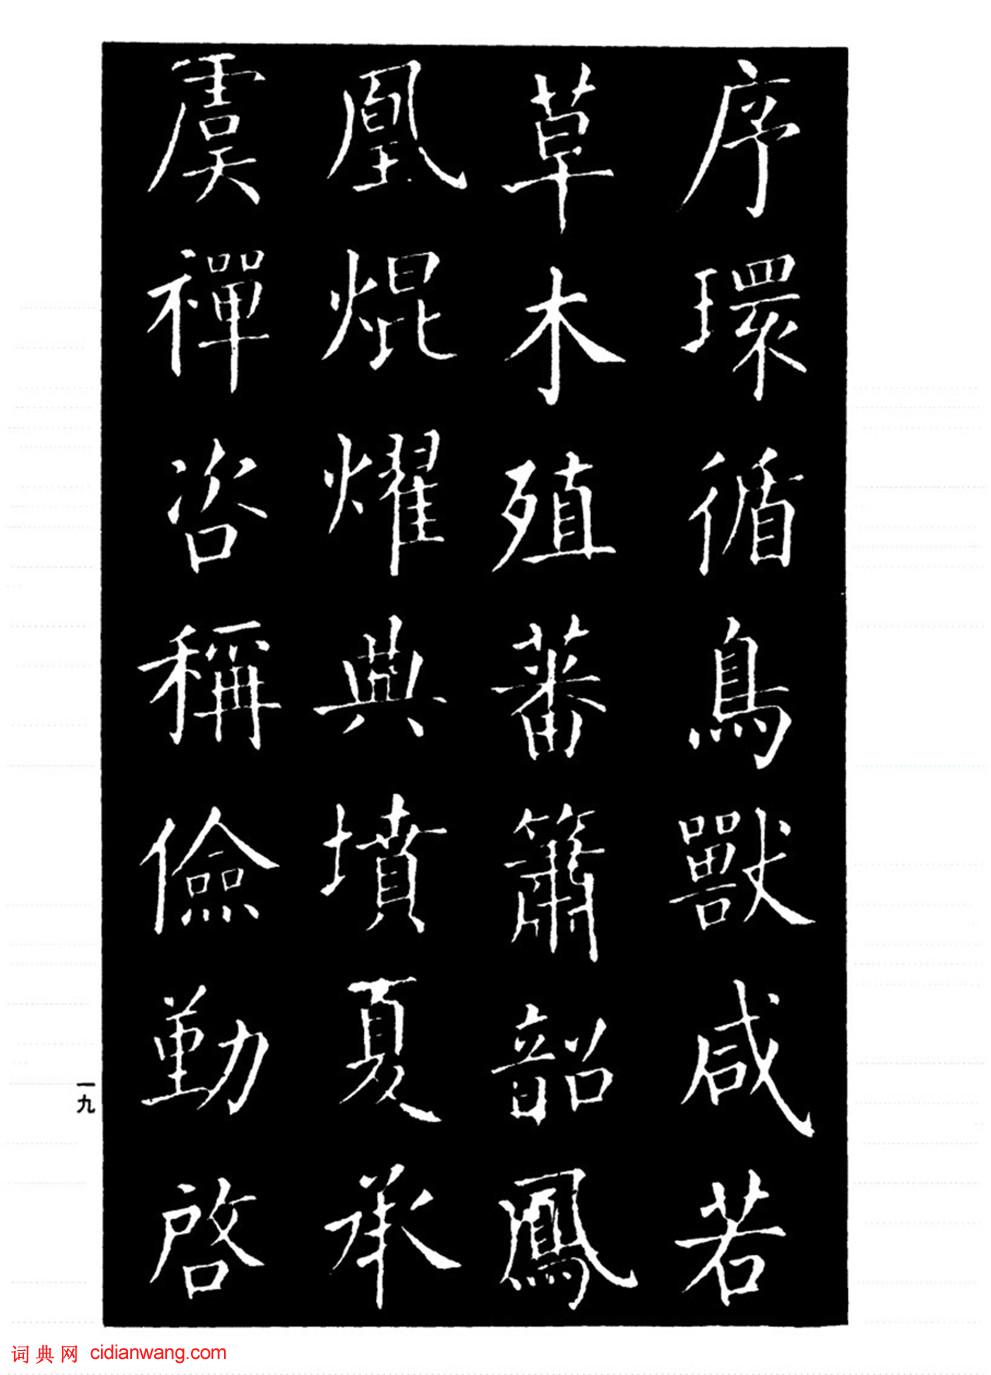 序環循鳥獸咸若
草木殖蕃簫韶鳳
凰焜燿典墳夏承
虞禪咨稱儉勤啓
一九
词典网 cidianwang.com